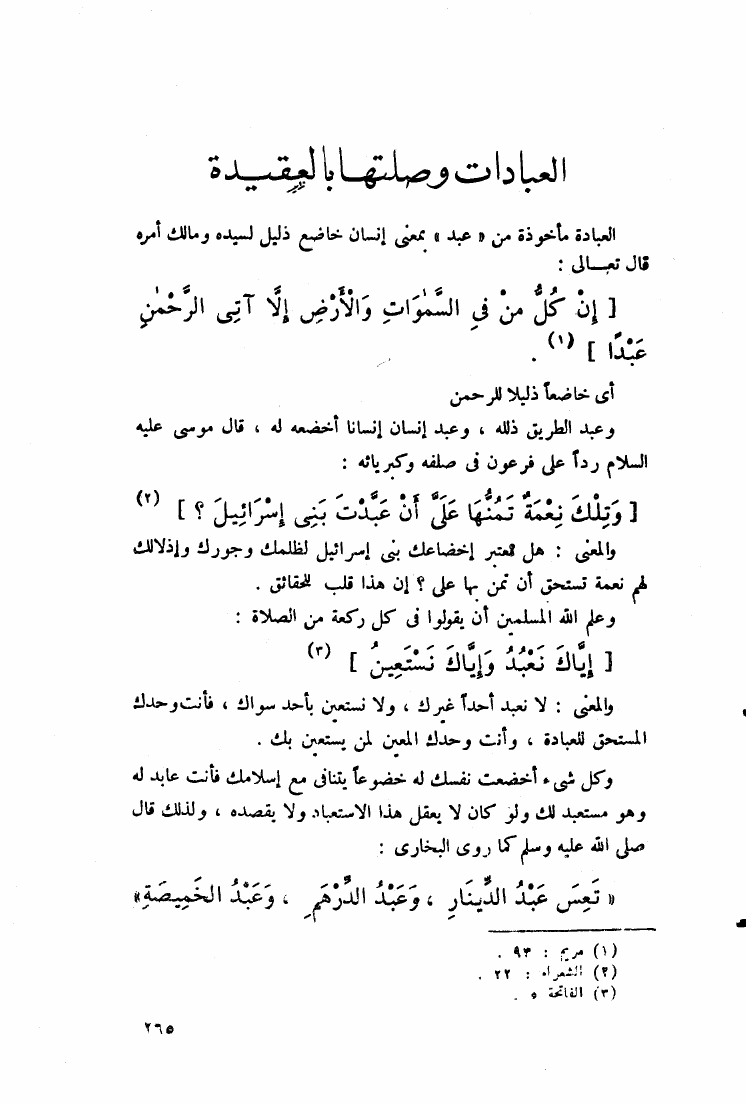 العبادات وصلتها بالعقيدة
العبادة مأخوذة من « عبد » بمعنى إنسان خاضع ذليل لسيده ومالك أمره
قال تعالى :
[ إِنْ كُلُّ مَنْ فِي السَّمٰوَاتِ وَالْأَرْضِ إِلَّا آتِي الرَّحْمٰنِ
عَبْدًا ] (١) .
أى خاضعاً ذليلا للرحمن
وعبد الطريق ذلله ، وعبد إنسان إنسانا أخضعه له ، قال موسى عليه
السلام رداً على فرعون فى صلفه وكبريائه :
[ وَتِلْكَ نِعْمَةٌ تَمُنُّهَا عَلَىَّ أَنْ عَبَّدْتَ بَنِى إِسْرَائِيلَ ؟ ] (٢)
والمعنى : هل تعتبر إخضاعك بنى إسرائيل لظلمك وجورك وإذلالك
لهم نعمة تستحق أن تمن بها على ؟ إن هذا قلب للحقائق .
وعلم الله المسلمين أن يقولوا فى كل ركعة من الصلاة :
[ إِيَّاكَ نَعْبُدُ وَإِيَّاكَ نَسْتَعِينُ ] (٣)
والمعنى : لا نعبد أحداً غيرك ، ولا نستعين بأحد سواك ، فأنت وحدك
المستحق للعبادة ، وأنت وحدك المعين لمن يستعين بك .
وكل شىء أخضعت نفسك له خضوعاً يتنافى مع إسلامك فأنت عابد له
وهو مستعبد لك ولو كان لا يعقل هذا الاستعباد ولا يقصده ، ولذلك قال
صلى الله عليه وسلم كما روى البخارى :
« تَعِسَ عَبْدُ الدِّينَارِ ، وَعَبْدُ الدِّرْهَمِ ، وَعَبْدُ الخَمِيصَةِ»
(١) مريم : ٩٣ .
(٢) الشعراء : ٢٢ .
(٣) الفاتحة ٥ .
٢٦٥